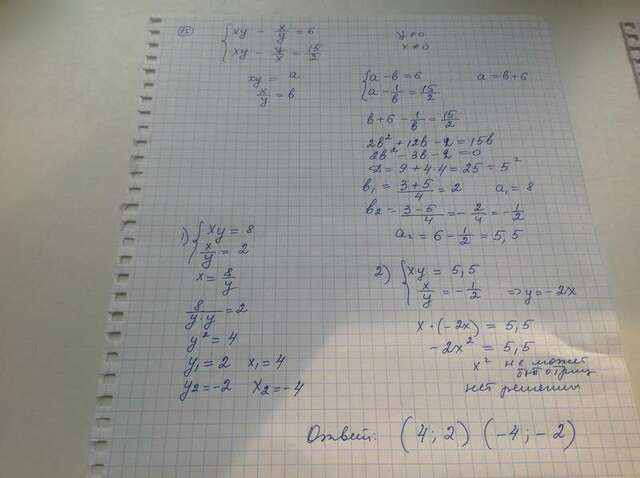 75
{xy - x/y = 6
{xy - y/x = 15/2
y ≠ 0
x ≠ 0
xy = a
x/y = b
{a - b = 6
{a - 1/b = 15/2
a = b + 6
b + 6 - 1/b = 15/2
2b² + 12b - 2 = 15b
2b² - 3b - 2 = 0
D = 9 + 4·4 = 25 = 5²
b₁ = (3+5)/4 = 2 a₁ = 8
b₂ = (3-5)/4 = -2/4 = -1/2
a₂ = 6 - 1/2 = 5,5
1) {xy = 8
{x/y = 2
x = 8/y
8/(y·y) = 2
y² = 4
y₁ = 2 x₁ = 4
y₂ = -2 x₂ = -4
2) {xy = 5,5
{x/y = -1/2 => y = -2x
x·(-2x) = 5,5
-2x² = 5,5
x² не может
быть отриц
нет решений
Ответ: (4; 2) (-4; -2)